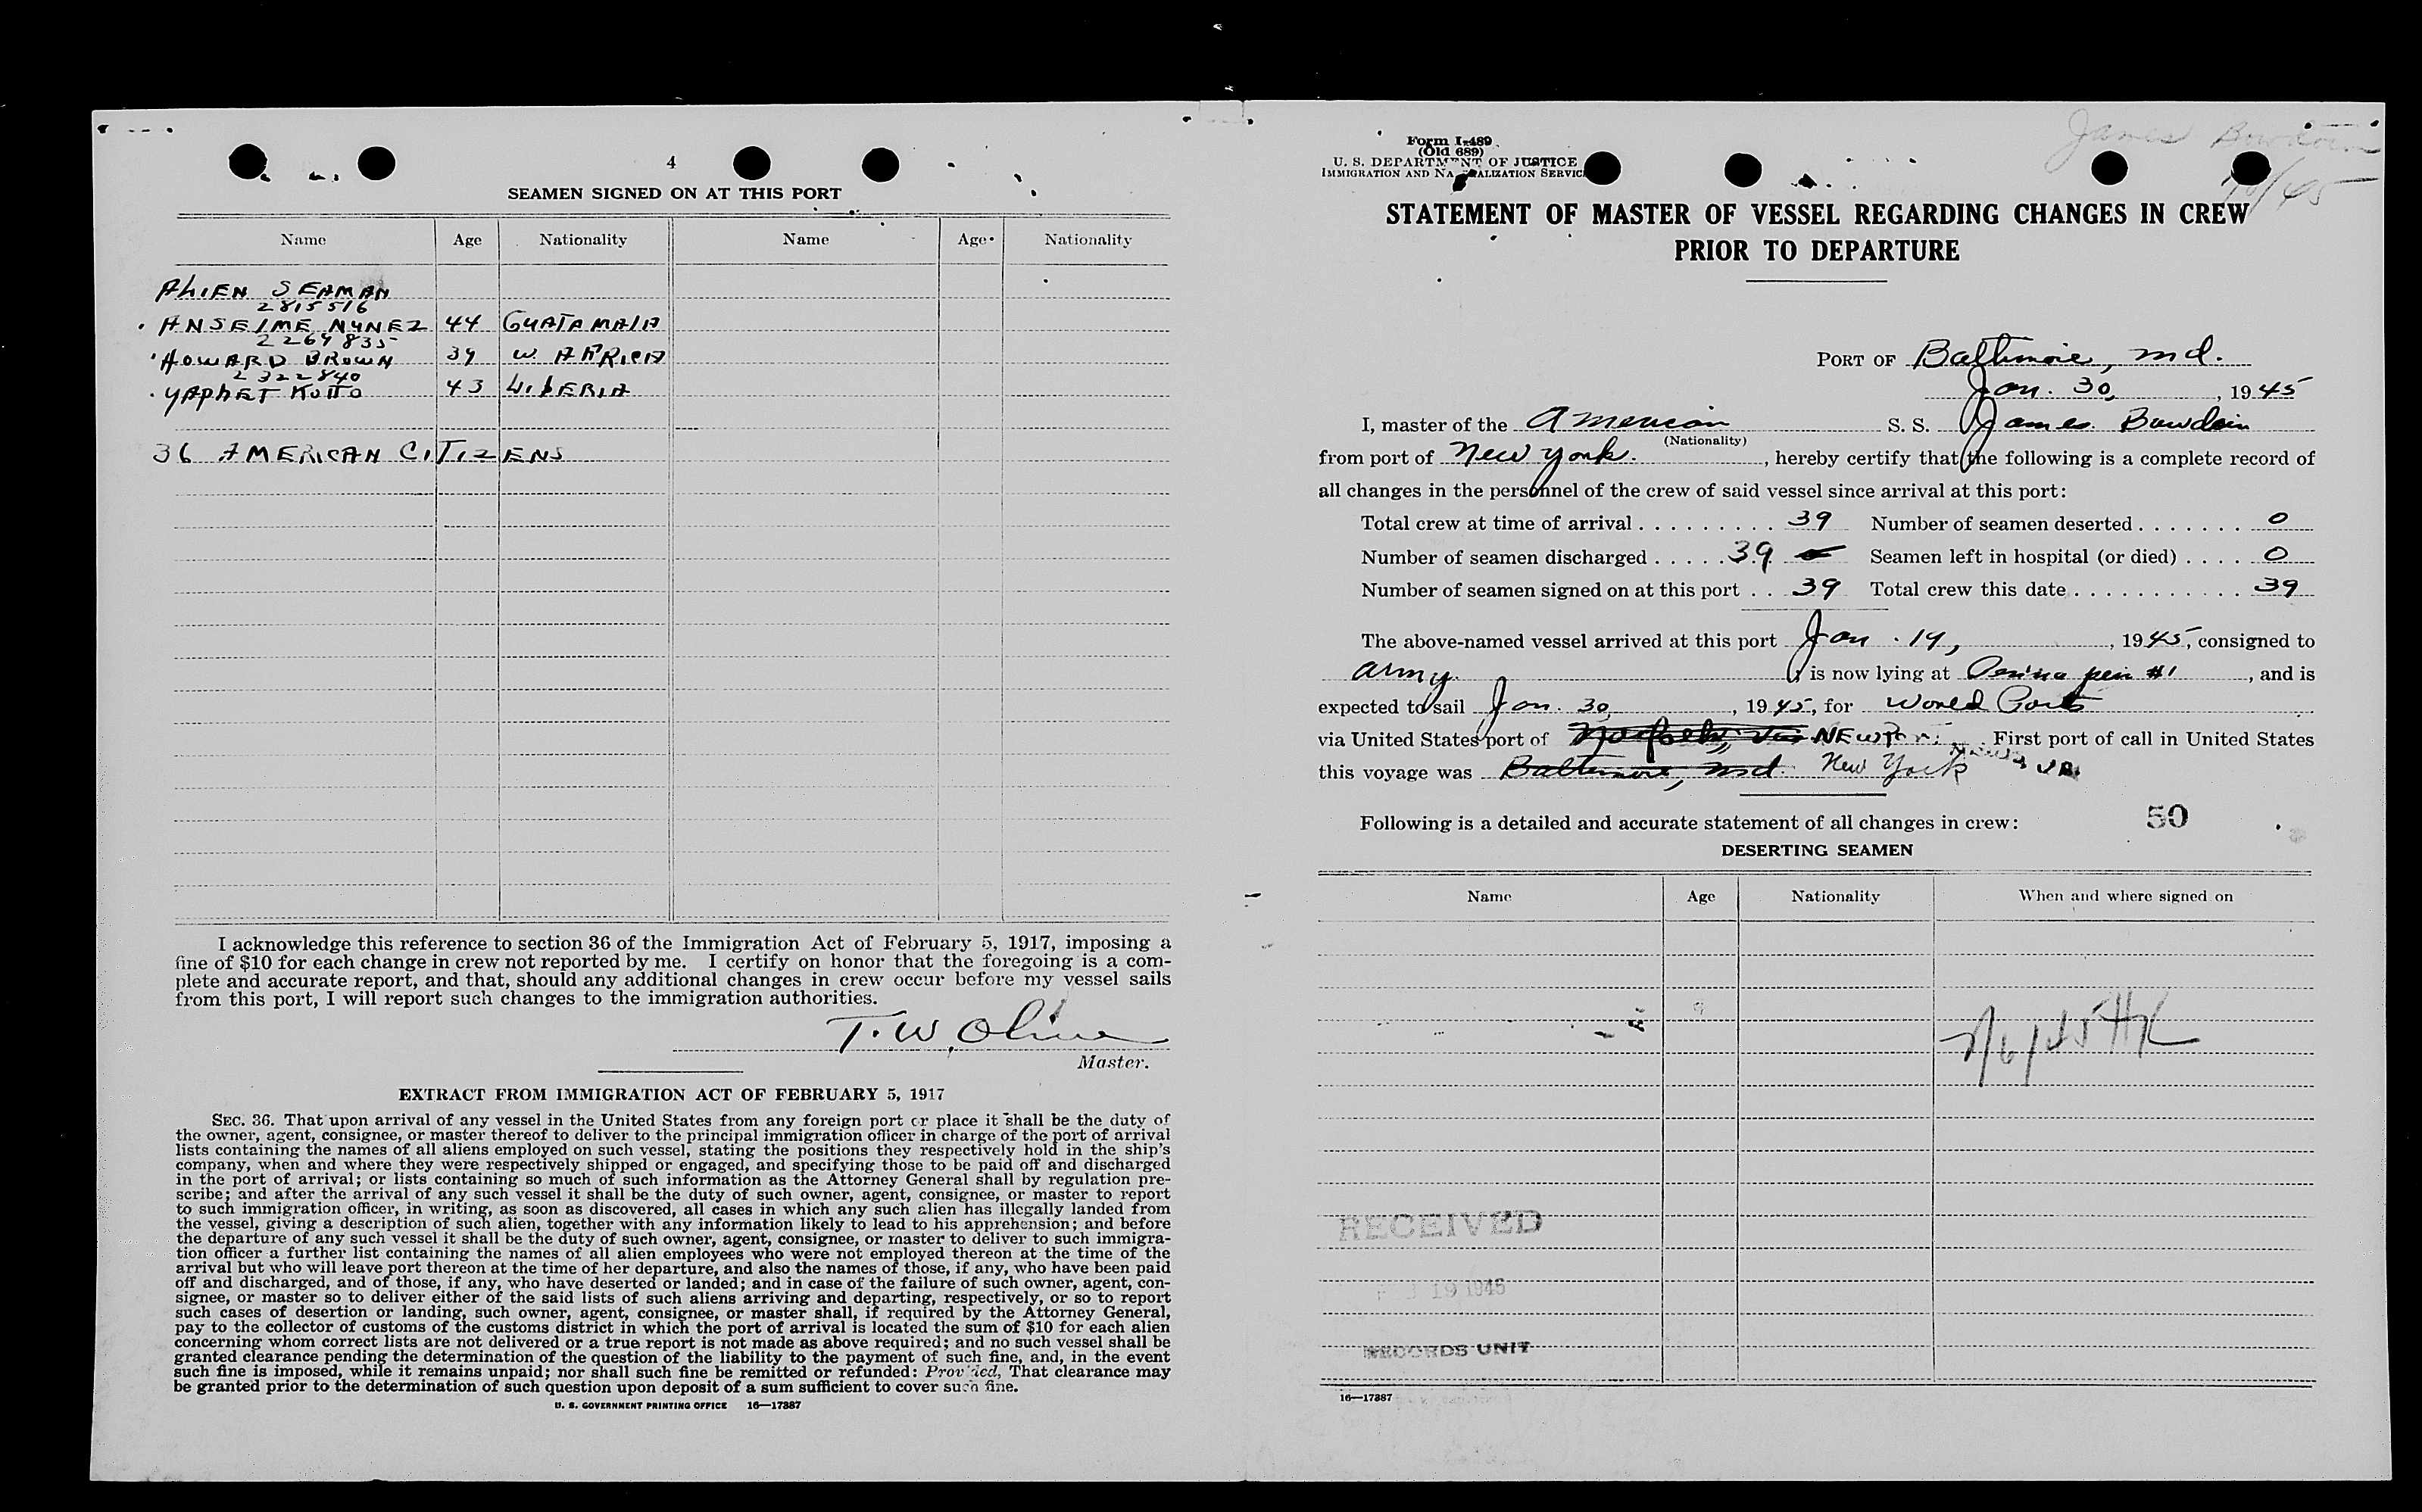 4
SEAMEN SIGNED ON AT THIS PORT
Name Age Nationality Name Age Nationality
ALIEN SEAMAN
2815516
ANSELME NUNEZ 44 GUATAMALA
2264835
HOWARD BROWN 39 W. AFRICA
2322840
YAPHET KOTTO 43 LIBERIA
36 AMERICAN CITIZENS
I acknowledge this reference to section 36 of the Immigration Act of February 5, 1917, imposing a
fine of $10 for each change in crew not reported by me. I certify on honor that the foregoing is a com-
plete and accurate report, and that, should any additional changes in crew occur before my vessel sails
from this port, I will report such changes to the immigration authorities.
T. W. 
Master.
EXTRACT FROM IMMIGRATION ACT OF FEBRUARY 5, 1917
SEC. 36. That upon arrival of any vessel in the United States from any foreign port or place it shall be the duty of
the owner, agent, consignee, or master thereof to deliver to the principal immigration officer in charge of the port of arrival
lists containing the names of all aliens employed on such vessel, stating the positions they respectively hold in the ship's
company, when and where they were respectively shipped or engaged, and specifying those to be paid off and discharged
in the port of arrival; or lists containing so much of such information as the Attorney General shall by regulation pre-
scribe; and after the arrival of any such vessel it shall be the duty of such owner, agent, consignee, or master to report
to such immigration officer, in writing, as soon as discovered, all cases in which any such alien has illegally landed from
the vessel, giving a description of such alien, together with any information likely to lead to his apprehension; and before
the departure of any such vessel it shall be the duty of such owner, agent, consignee, or master to deliver to such immigra-
tion officer a further list containing the names of all alien employees who were not employed thereon at the time of the
arrival but who will leave port thereon at the time of her departure, and also the names of those, if any, who have been paid
off and discharged, and of those, if any, who have deserted or landed; and in case of the failure of such owner, agent, con-
signee, or master so to deliver either of the said lists of such aliens arriving and departing, respectively, or so to report
such cases of desertion or landing, such owner, agent, consignee, or master shall, if required by the Attorney General,
pay to the collector of customs of the customs district in which the port of arrival is located the sum of $10 for each alien
concerning whom correct lists are not delivered or a true report is not made as above required; and no such vessel shall be
granted clearance pending the determination of the question of the liability to the payment of such fine, and, in the event
such fine is imposed, while it remains unpaid; nor shall such fine be remitted or refunded: Provided, That clearance may
be granted prior to the determination of such question upon deposit of a sum sufficient to cover such fine.
U. S. GOVERNMENT PRINTING OFFICE 16—17887
James Bowdoin
Form I-489
(Old 689)
U. S. DEPARTMENT OF JUSTICE
IMMIGRATION AND NATURALIZATION SERVICE
STATEMENT OF MASTER OF VESSEL REGARDING CHANGES IN CREW
PRIOR TO DEPARTURE
PORT OF Baltimore, Md.
Jan. 30, , 1945
I, master of the American S. S. James Bowdoin
(Nationality)
from port of New York. , hereby certify that the following is a complete record of
all changes in the personnel of the crew of said vessel since arrival at this port:
Total crew at time of arrival . . . . . . . . . 39 Number of seamen deserted . . . . . . . 0
Number of seamen discharged . . . . . 39 Seamen left in hospital (or died) . . . . 0
Number of seamen signed on at this port . . 39 Total crew this date . . . . . . . . . . . 39
The above-named vessel arrived at this port Jan. 14, , 1945, consigned to
Army , is now lying at pier #1 , and is
expected to sail Jan. 30, , 1945, for World Ports
via United States port of Norfolk, Va. NEWPORT NEWS VA. First port of call in United States
this voyage was Baltimore, Md. New York
Following is a detailed and accurate statement of all changes in crew: 50
DESERTING SEAMEN
Name Age Nationality When and where signed on
RECEIVED
19 1945
RECORDS UNIT
16—17887